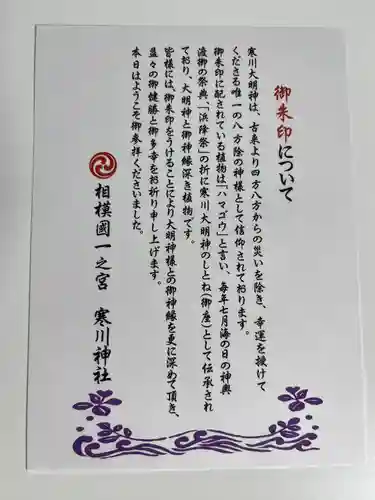 御朱印について
寒川大明神は、古来より四方八方からの災いを除き、幸運を授けて
くださる唯一の八方除の神様として信仰されております。
御朱印に配されている植物は「ハマゴウ」と言い、毎年七月海の日の神輿
渡御の祭典、「浜降祭」の折に寒川大明神のしとね(御座)として伝承され
ており、大明神と御神縁深き植物です。
皆様には、御朱印をうけることにより大明神様との御神縁を更に深めて頂き、
益々の御健勝と御多幸をお祈り申し上げます。
本日はようこそ御参拝くださいました。
相模國一之宮 寒川神社